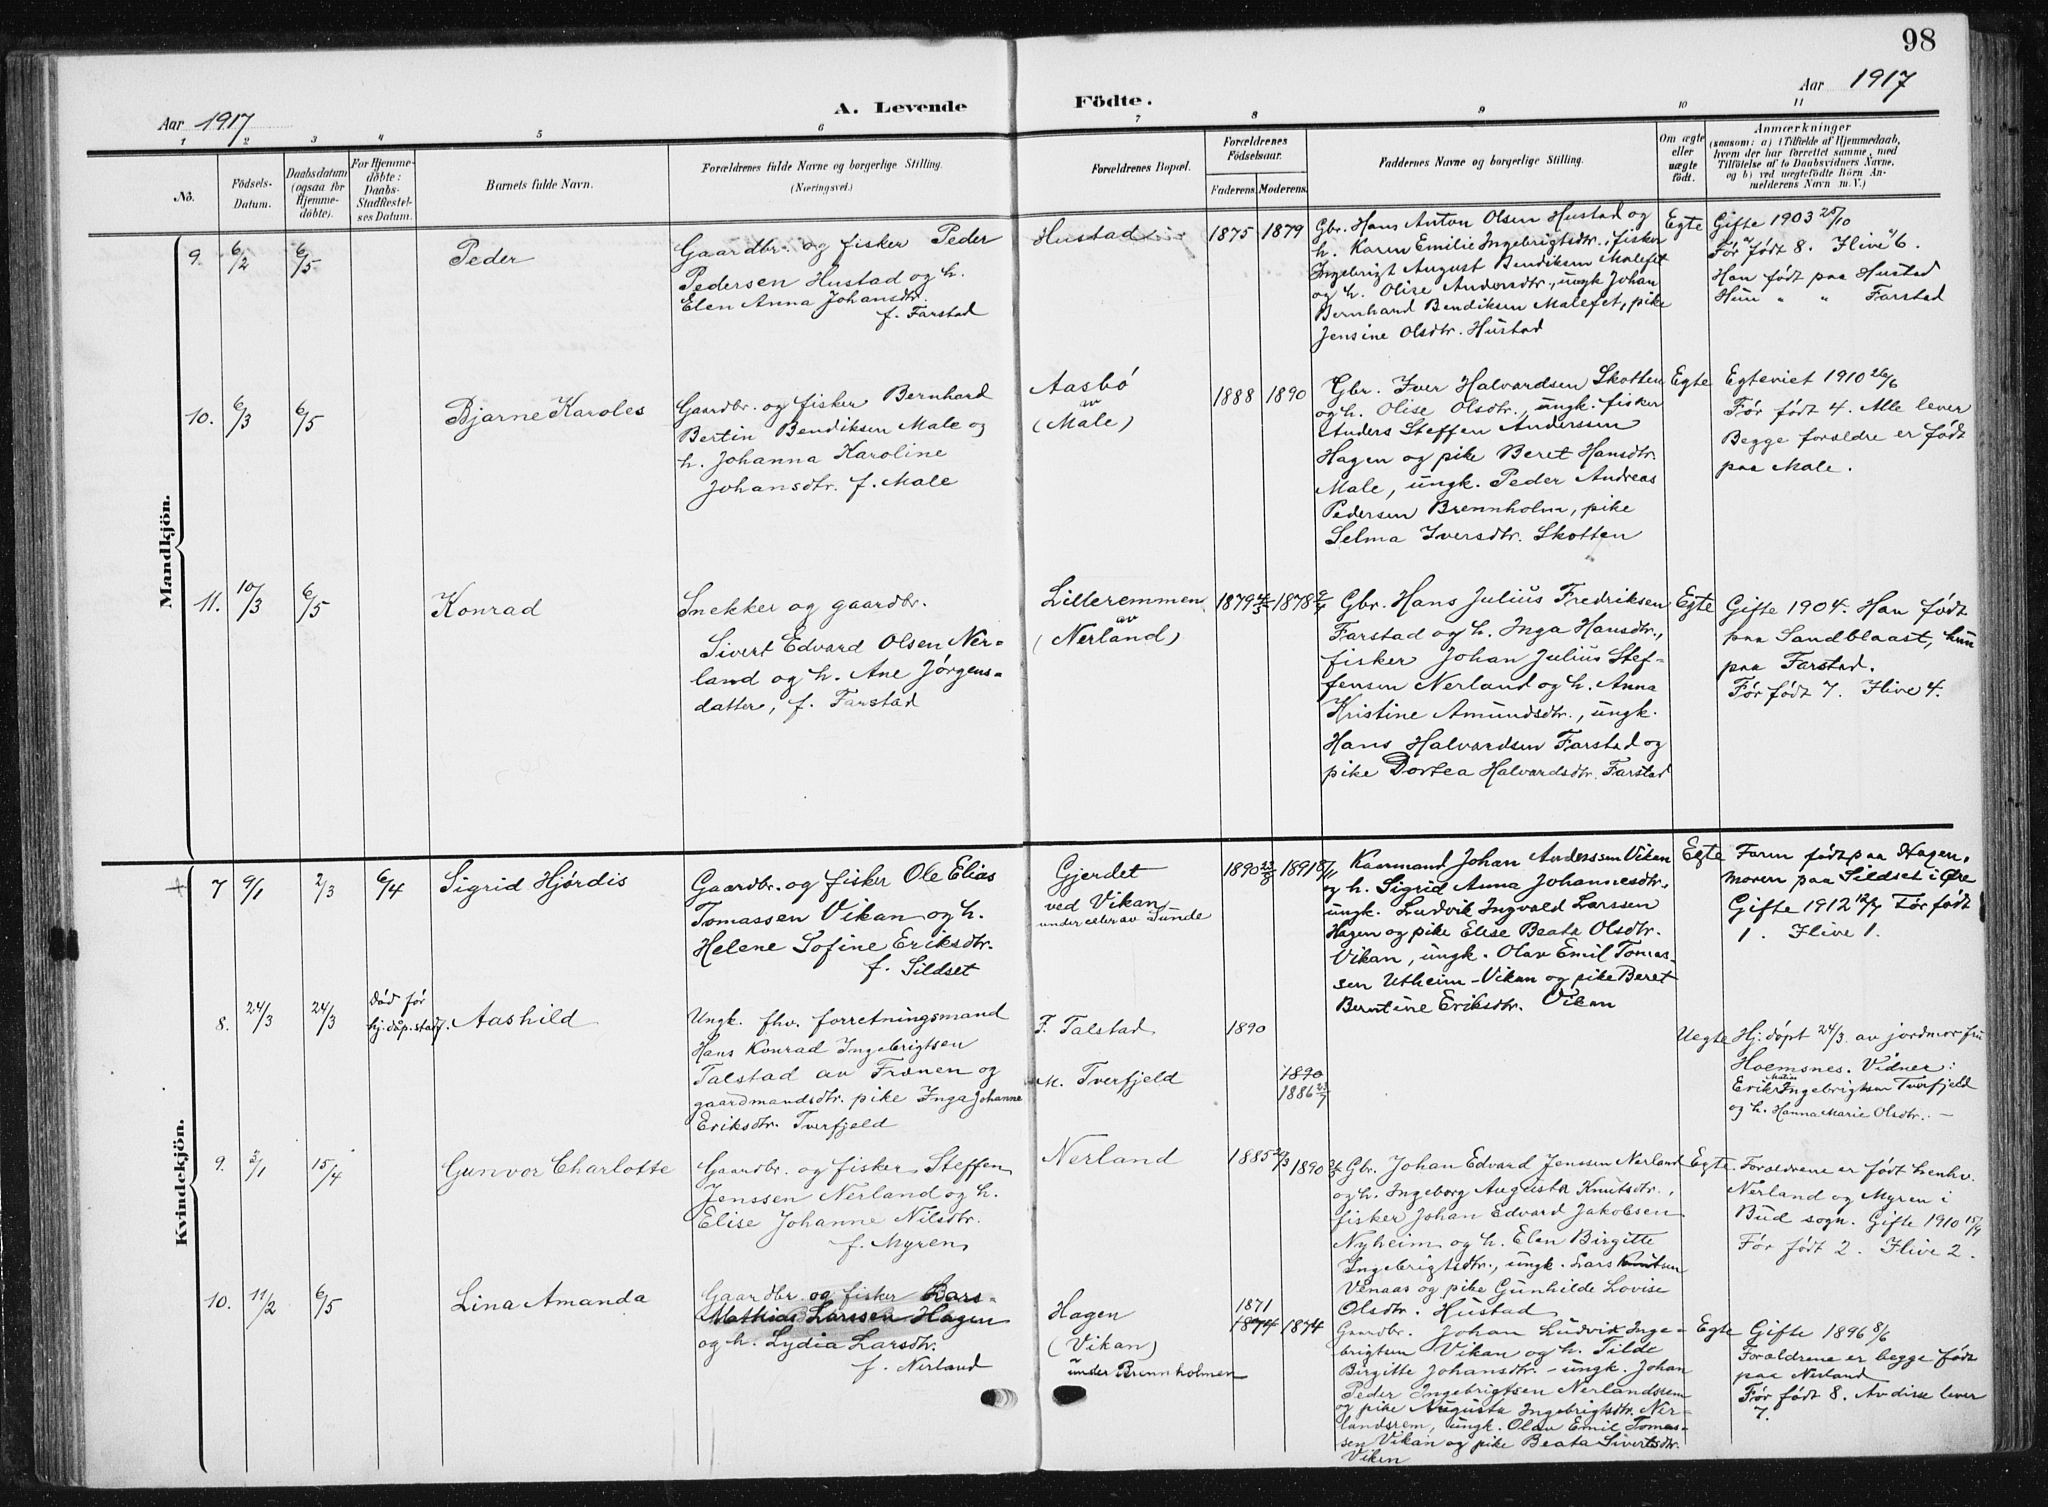 98
Aar 1917
A. Levende Födte.
Aar 1917
1 2 3 4 5 6 7 8 9 10 11
No.
Födsels-
Datum.
Daabsdatum
(ogsaa for
Hjemme-
döbte).
For Hjemme-
döbte:
Daabs-
Stadfæstel-
ses Datum.
Barnets fulde Navn.
Forældrenes fulde Navne og borgerlige Stilling.
(Næringsvei.)
Forældrenes Bopæl.
Forældrenes
Födselsaar.
Faderens. Moderens.
Faddernes Navne og borgerlige Stilling.
Om ægte
eller
uægte
födt.
Anmærkninger
(saasom: a) i Tilfælde af Hjemmedaab,
hvem der har forrettet samme, med
Tilföielse af to Daabsvidners Navne,
og b) ved uægtefödte Börn An-
melderens Navn m. V.)
Mandkjön.
9. 6/2 6/5 Peder
Gaardbr. og fisker Peder
Pedersen Hustad og h.
Elen Anna Johansdtr.
f. Farstad
Hustad
1875 1879
Gbr. Hans Anton Olsen Hustad og
h. Karen Emilie Ingebrigtsdtr., fisker
Ingebrigt August Bendiksen Malefet
og h. Olise Andersdtr., ungk. Johan
Bernhard Bendiksen Malefet, pike
Jensine Olsdtr. Hustad
Egte
Gifte 1903 25/10
Før født 8. Ilive 6.
Han født paa Hustad
Hun " " Farstad
10. 6/3 6/5 Bjarne Karoles
Gaardbr. og fisker Bernhard
Bertin Bendiksen Male og
h. Johanna Karoline
Johansdtr. f. Male
Aasbø
av
(Male)
1888 1890
Gbr. Iver Halvardsen Skotten
og h. Olise Olsdtr., ungk. fisker
Anders Steffen Anderssen
Hagen og pike Beret Hansdtr.
Male, ungk. Peder Andreas
Pedersen Brennholm, pike
Selma Iversdtr. Skotten
Egte
Egteviet 1910 26/6
Før født 4. Alle lever
Begge forældre er født
paa Male.
11. 10/3 6/5 Konrad
Snekker og gaardbr.
Sivert Edvard Olsen Ner-
land og h. Ane Jørgens-
datter, f. Farstad
Lilleremmen
av
(Nerland)
1879 1878
Gbr. Hans Julius Fredriksen
Farstad og h. Inga Hansdtr.,
fisker Johan Julius Stef-
fensen Nerland og h. Anna
Kristine Amundsdtr., ungk.
Hans Halvardsen Farstad og
pike Dortea Halvardsdtr. Farstad
Egte
Gifte 1904. Han født
paa Sandblaast, hun
paa Farstad.
Før født 7. Ilive 4.
Kvindekjön.
7 9/1 2/3 6/4 Sigrid Hjørdis
Gaardbr. og fisker Ole Elias
Tomassen Vikan og h.
Helene Sofine Eriksdtr.
f. Sildset
Gjerdet
ved Vikan
under Sunde
1890 1891
Kaarmand Johan Anderssen Vikan
og h. Sigrid Anna Johannesdtr.,
ungk. Ludvik Ingvald Larssen
Hagen og pike Elise Beata Olsdtr.
Vikan, ungk. Olav Emil Tomas-
sen Utheim-Vikan og pike Beret
Berntine Eriksdtr. Vikan
Egte
Faren født paa Hagen,
moren paa Sildset i Øre
Gifte 1912 12/7 Før født
1. Ilive 1.
8. 24/3 24/3 Død før
hj.dåp. stadf. Aashild
Ungk. fhv. forretningsmand
Hans Konrad Ingebrigtsen
Talstad av Frænen og
gaardmandsdtr. pike Inga Johanne
Eriksdtr. Tverfjeld
F. Talstad
M. Tverfjeld
1890
1890
1886 23/7
Uegte
Hj: døpt 24/3 av jordmor fru
Holmsnes. Vidner:
Erik Ingebrigtsen Tverfjeld
og h. Hanna Marie Olsdtr. –
9. 3/1 15/4 Gunvor Charlotte
Gaardbr. og fisker Steffen
Jenssen Nerland og h.
Elise Johanne Nilsdtr.
f. Myren
Nerland
1885 1890
Gbr. Johan Edvard Jenssen Nerland
og h. Ingeborg Augusta Knutsdtr.,
fisker Johan Edvard Jakobsen
Nyheim og h. Elen Birgitte
Ingebrigtsdtr., ungk. Lars Knutsen
Venaas og pike Gunhilde Lovise
Olsdtr. Hustad
Egte
Forældrene er født henhv.
Nerland og Myren i
Bud sogn. Gifte 1910 15/9
Før født 2. Ilive 2.
10. 11/2 6/5 Lina Amanda
Gaardbr. og fisker Lars
Mathias Larssen Hagen
og h. Lydia Larsdtr.
f. Nerland
Hagen
(Vikan)
under Brennholmen
1871
1874 1874
Gaardbr. Johan Ludvik Inge-
brigtsen Vikan og h. Tilde
Birgitte Johansdtr. – ungk. Johan
Peder Ingebrigtsen Nerlandsrem
og pike Augusta Ingebrigtsdtr. Ner-
landsrem, ungk. Olav Emil Tomas-
sen Vikan og pike Beata Sivertsdtr.
Viken
Egte
Gifte 1896 8/6
Forældrene er begge født
paa Nerland
Før født 8. Av disse lever
7.